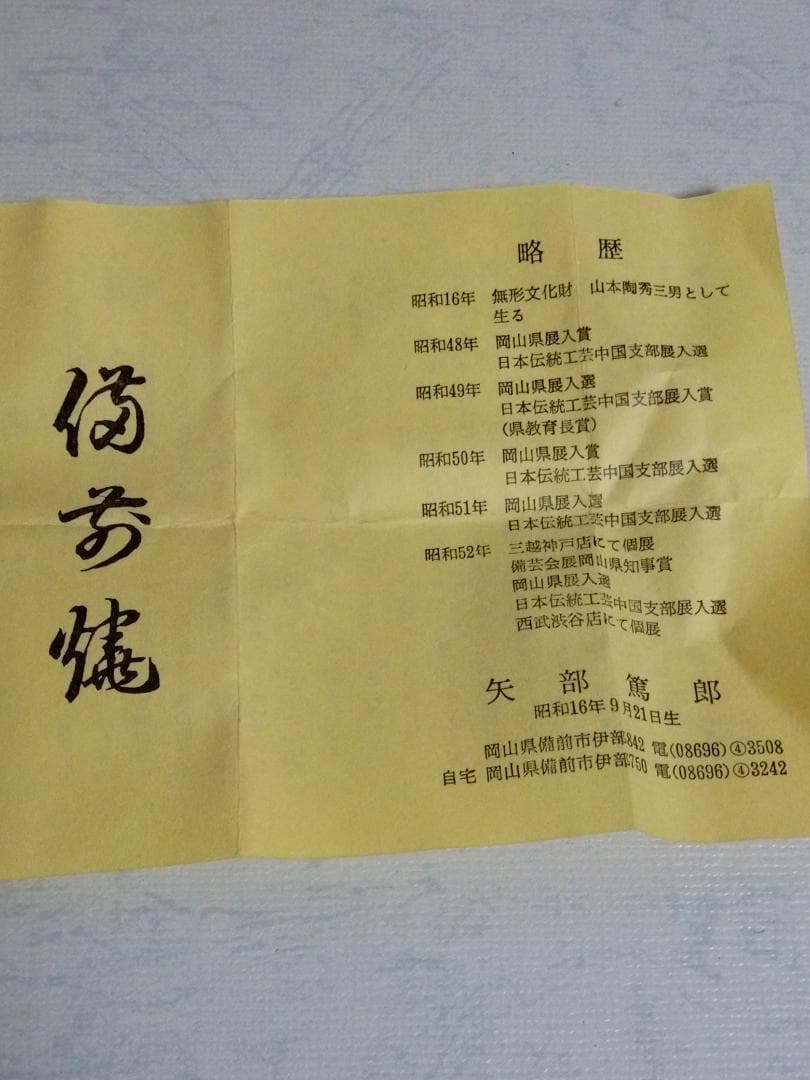 備前燒
略歴
昭和16年 無形文化財 山本陶秀三男として
生る
昭和48年 岡山県展入賞
日本伝統工芸中国支部展入選
昭和49年 岡山県展入選
日本伝統工芸中国支部展入賞
(県教育長賞)
昭和50年 岡山県展入賞
日本伝統工芸中国支部展入選
昭和51年 岡山県展入選
日本伝統工芸中国支部展入選
昭和52年 三越神戸店にて個展
備芸会展岡山県知事賞
岡山県展入選
日本伝統工芸中国支部展入選
西武渋谷店にて個展
矢部篤郎
昭和16年9月21日生
岡山県備前市伊部842 電(08696)④3508
自宅 岡山県備前市伊部750 電(08696)④3242